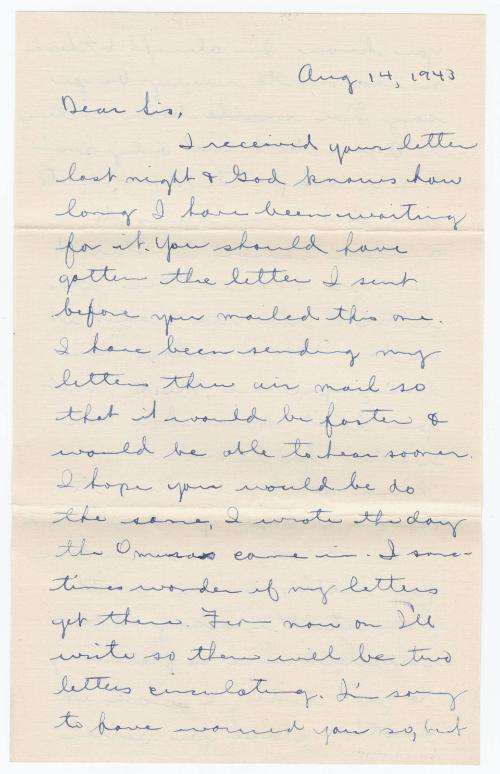 Aug 14, 1943
Dear Sis,
I received your letter
last night & God knows how
long I have been waiting
for it. You should have
gotten the letter I sent
before you mailed this one.
I have been sending my
letters thru air mail so
that it would be faster &
would be able to hear sooner.
I hope you would be do
the same, I wrote the day
the came in. I some-
times wonder if my letters
get there. From now on I'll
write so there will be two
letters circulating. I'm sorry
to have worried you so, but